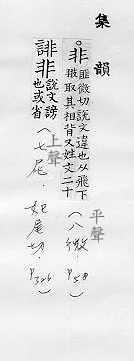 集韻
。非 匪微切説文違也从飛下
翄取其相背又姓文二十
平聲
(八微. P58)
誹非 説文謗
也或省
上聲
(七尾. 妃尾切. P326)